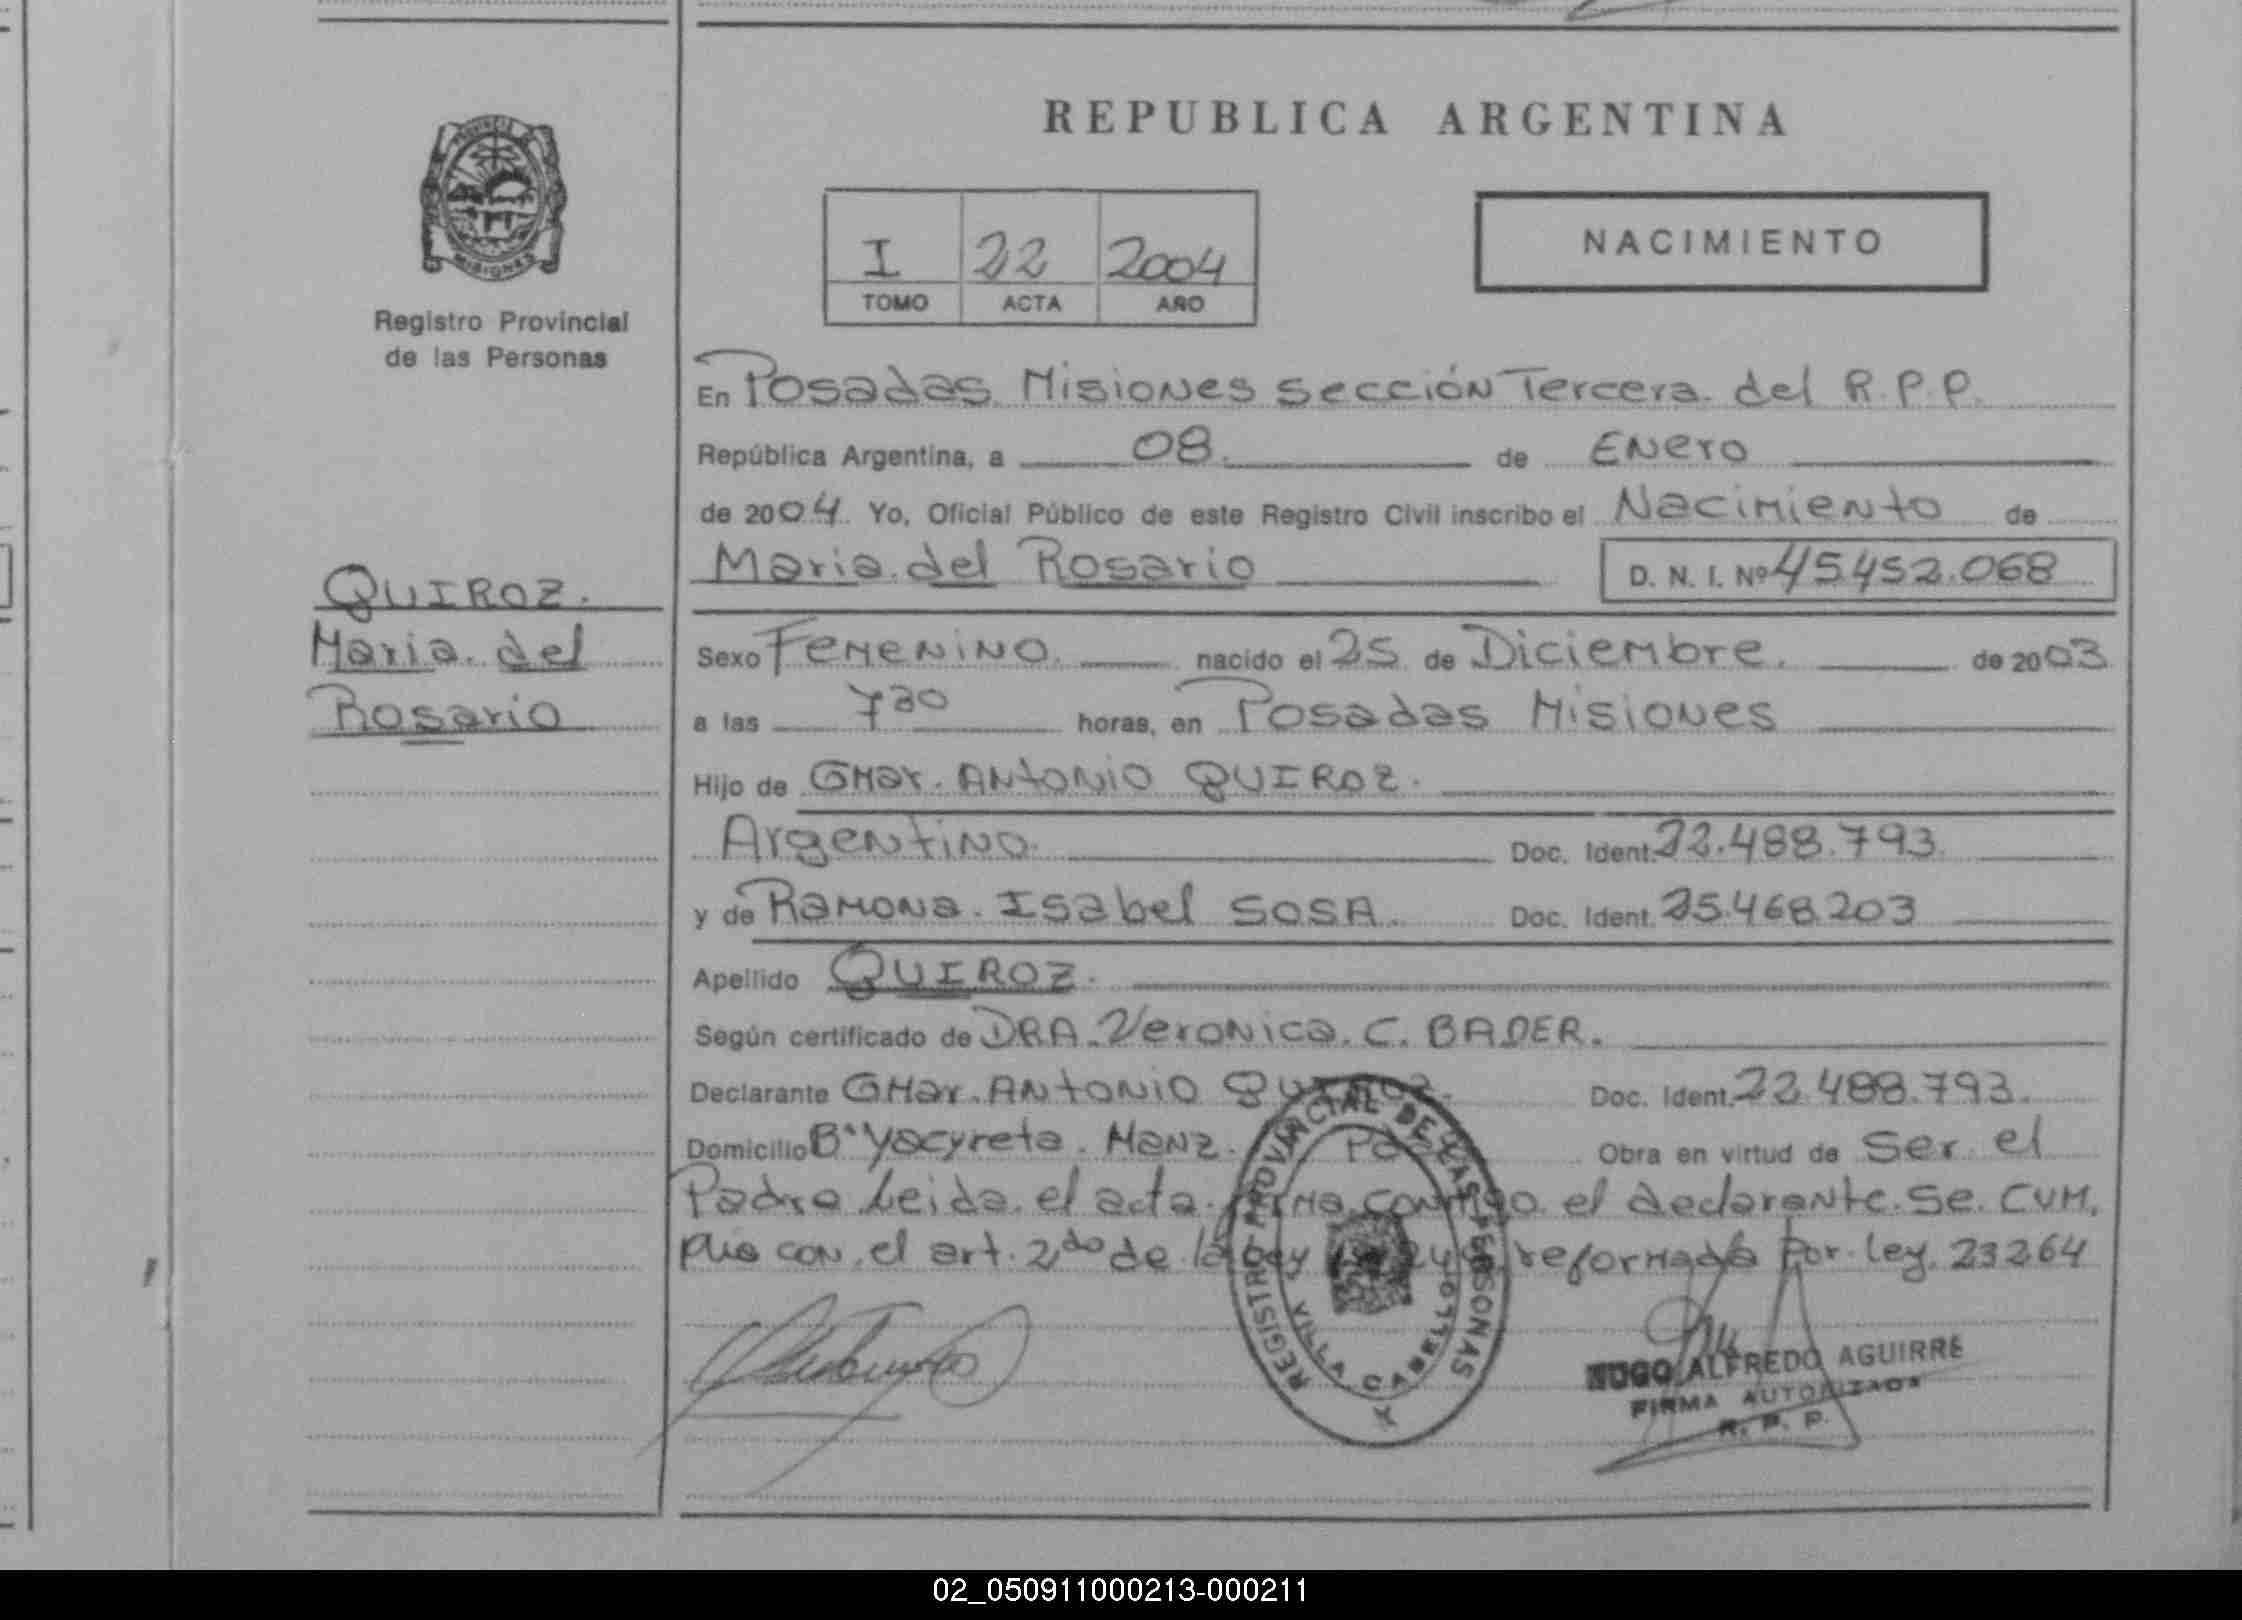 REPUBLICA ARGENTINA
PROVINCIA
MISIONES
Registro Provincial
de las Personas
I 22 2004
TOMO ACTA AÑO
NACIMIENTO
En Posadas Misiones sección Tercera del R.P.P.
República Argentina, a 08 de Enero
de 2004 Yo, Oficial Público de este Registro Civil inscribo el Nacimiento de
Maria del Rosario D. N. I. Nº 45.452.068
QUIROZ.
Maria del
Rosario
Sexo Femenino nacido el 25 de Diciembre de 2003
a las 7 30 horas, en Posadas Misiones
Hijo de Omar Antonio QUIROZ.
Argentino Doc. Ident. 22.488.793
y de Ramona Isabel SOSA. Doc. Ident. 25.468.203
Apellido QUIROZ.
Según certificado de DRA. Veronica C. BADER.
Declarante Omar Antonio QUIROZ. Doc. Ident. 22.488.793.
Domicilio Bº Yacyreta Manz. Obra en virtud de Ser el
Padre Leida el acta firma conmigo el declarante. Se CUM,
plio con el art. 2do de la Ley reformada Por Ley 23264
REGISTRO PROVINCIAL DE LAS PERSONAS
VILLA CABELLO
HUGO ALFREDO AGUIRRE
FIRMA AUTORIZADA
R. P. P.
02_050911000213-000211